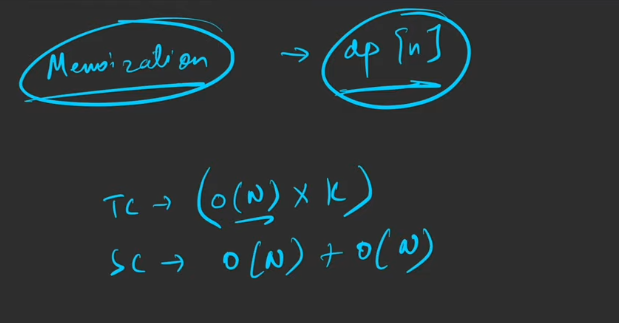 Memoization → dp [n]
TC → (O(N) × K)
SC → O(N) + O(N)